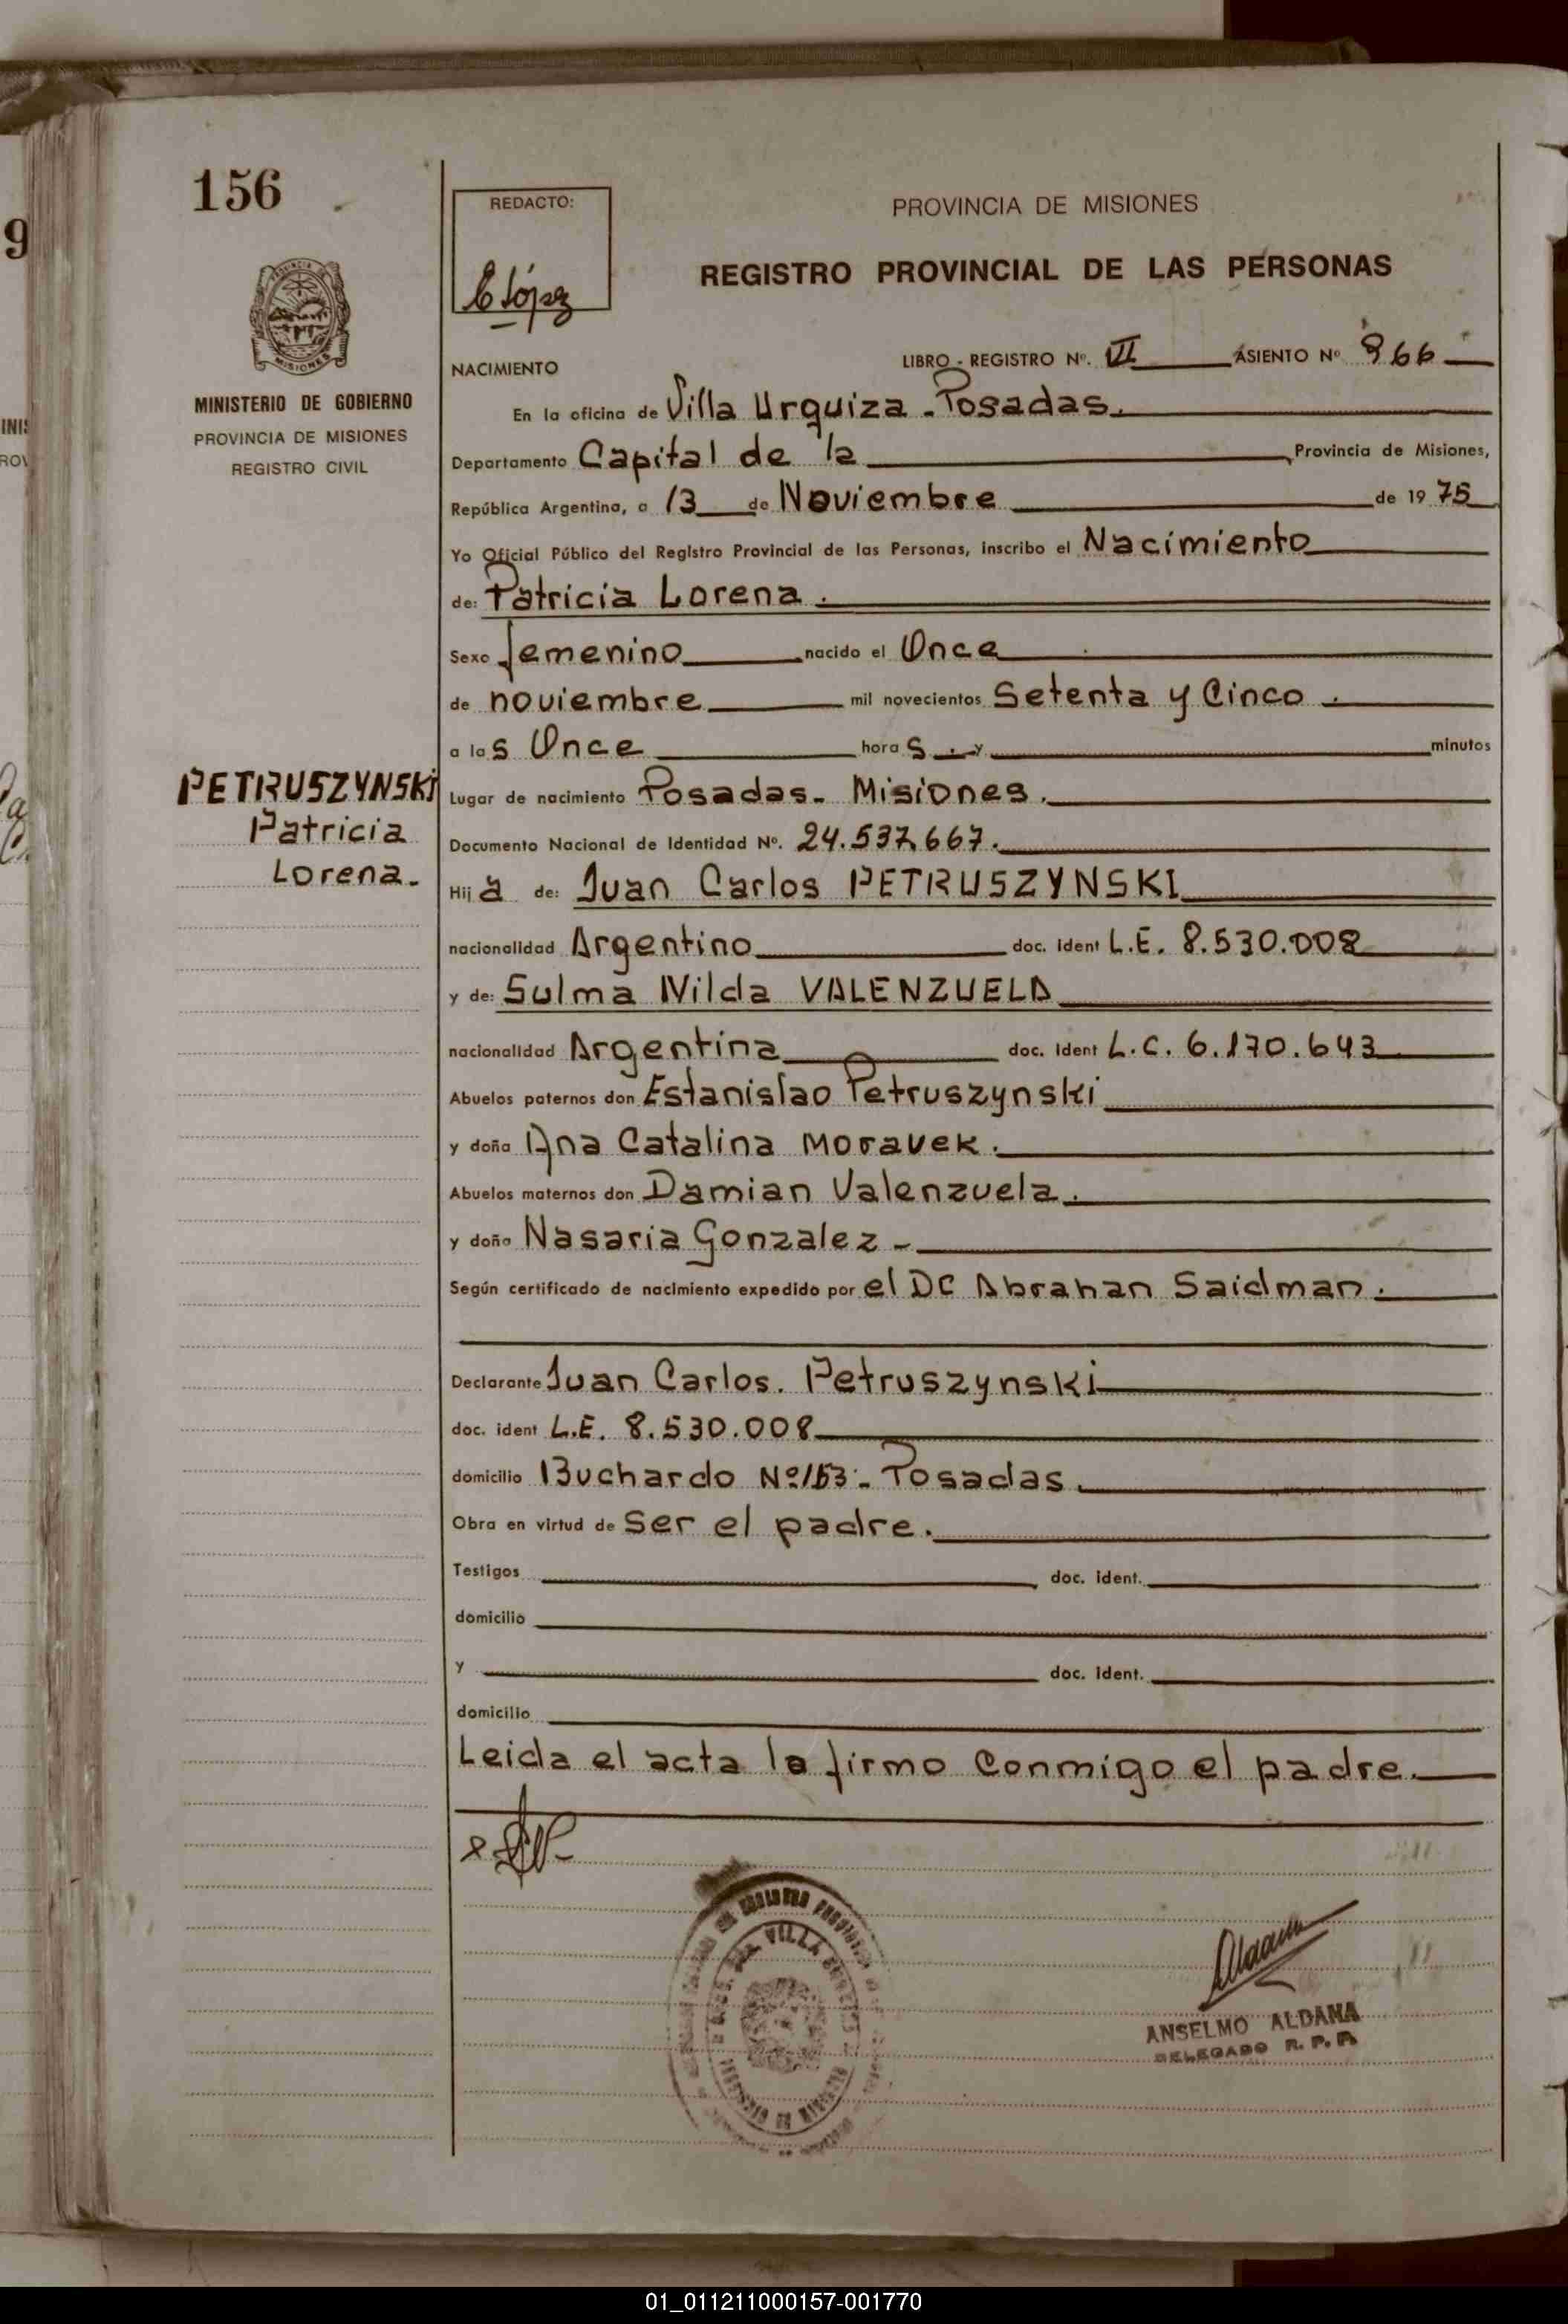 156
REDACTO:
C López
PROVINCIA DE MISIONES
REGISTRO PROVINCIAL DE LAS PERSONAS
MISIONES
MINISTERIO DE GOBIERNO
PROVINCIA DE MISIONES
REGISTRO CIVIL
NACIMIENTO
LIBRO - REGISTRO Nº. VI ASIENTO Nº 966
En la oficina de Villa Urquiza - Posadas.
Departamento Capital de la Provincia de Misiones,
República Argentina, a 13 de Noviembre de 19 75
Yo Oficial Público del Registro Provincial de las Personas, inscribo el Nacimiento
de: Patricia Lorena.
Sexo femenino nacido el Once
de noviembre mil novecientos Setenta y Cinco.
a las Once horas . y minutos
PETRUSZYNSKI
Patricia
Lorena.
Lugar de nacimiento Posadas - Misiones.
Documento Nacional de Identidad Nº. 24.537.667.
Hija de: Juan Carlos PETRUSZYNSKI
nacionalidad Argentino doc. ident L.E. 8.530.008
y de: Sulma Nilda VALENZUELA
nacionalidad Argentina doc. ident L.C. 6.170.643
Abuelos paternos don Estanislao Petruszynski
y doña Ana Catalina Moravek.
Abuelos maternos don Damian Valenzuela.
y doña Nasaria Gonzalez -
Según certificado de nacimiento expedido por el DC Abrahan Saidman.
Declarante Juan Carlos. Petruszynski
doc. ident L.E. 8.530.008
domicilio Buchardo Nº 153 - Posadas.
Obra en virtud de Ser el padre.
Testigos doc. ident.
domicilio
y doc. ident.
domicilio
Leida el acta la firmo conmigo el padre.
VILLA
ANSELMO ALDANA
DELEGADO R. P. P.
01_011211000157-001770